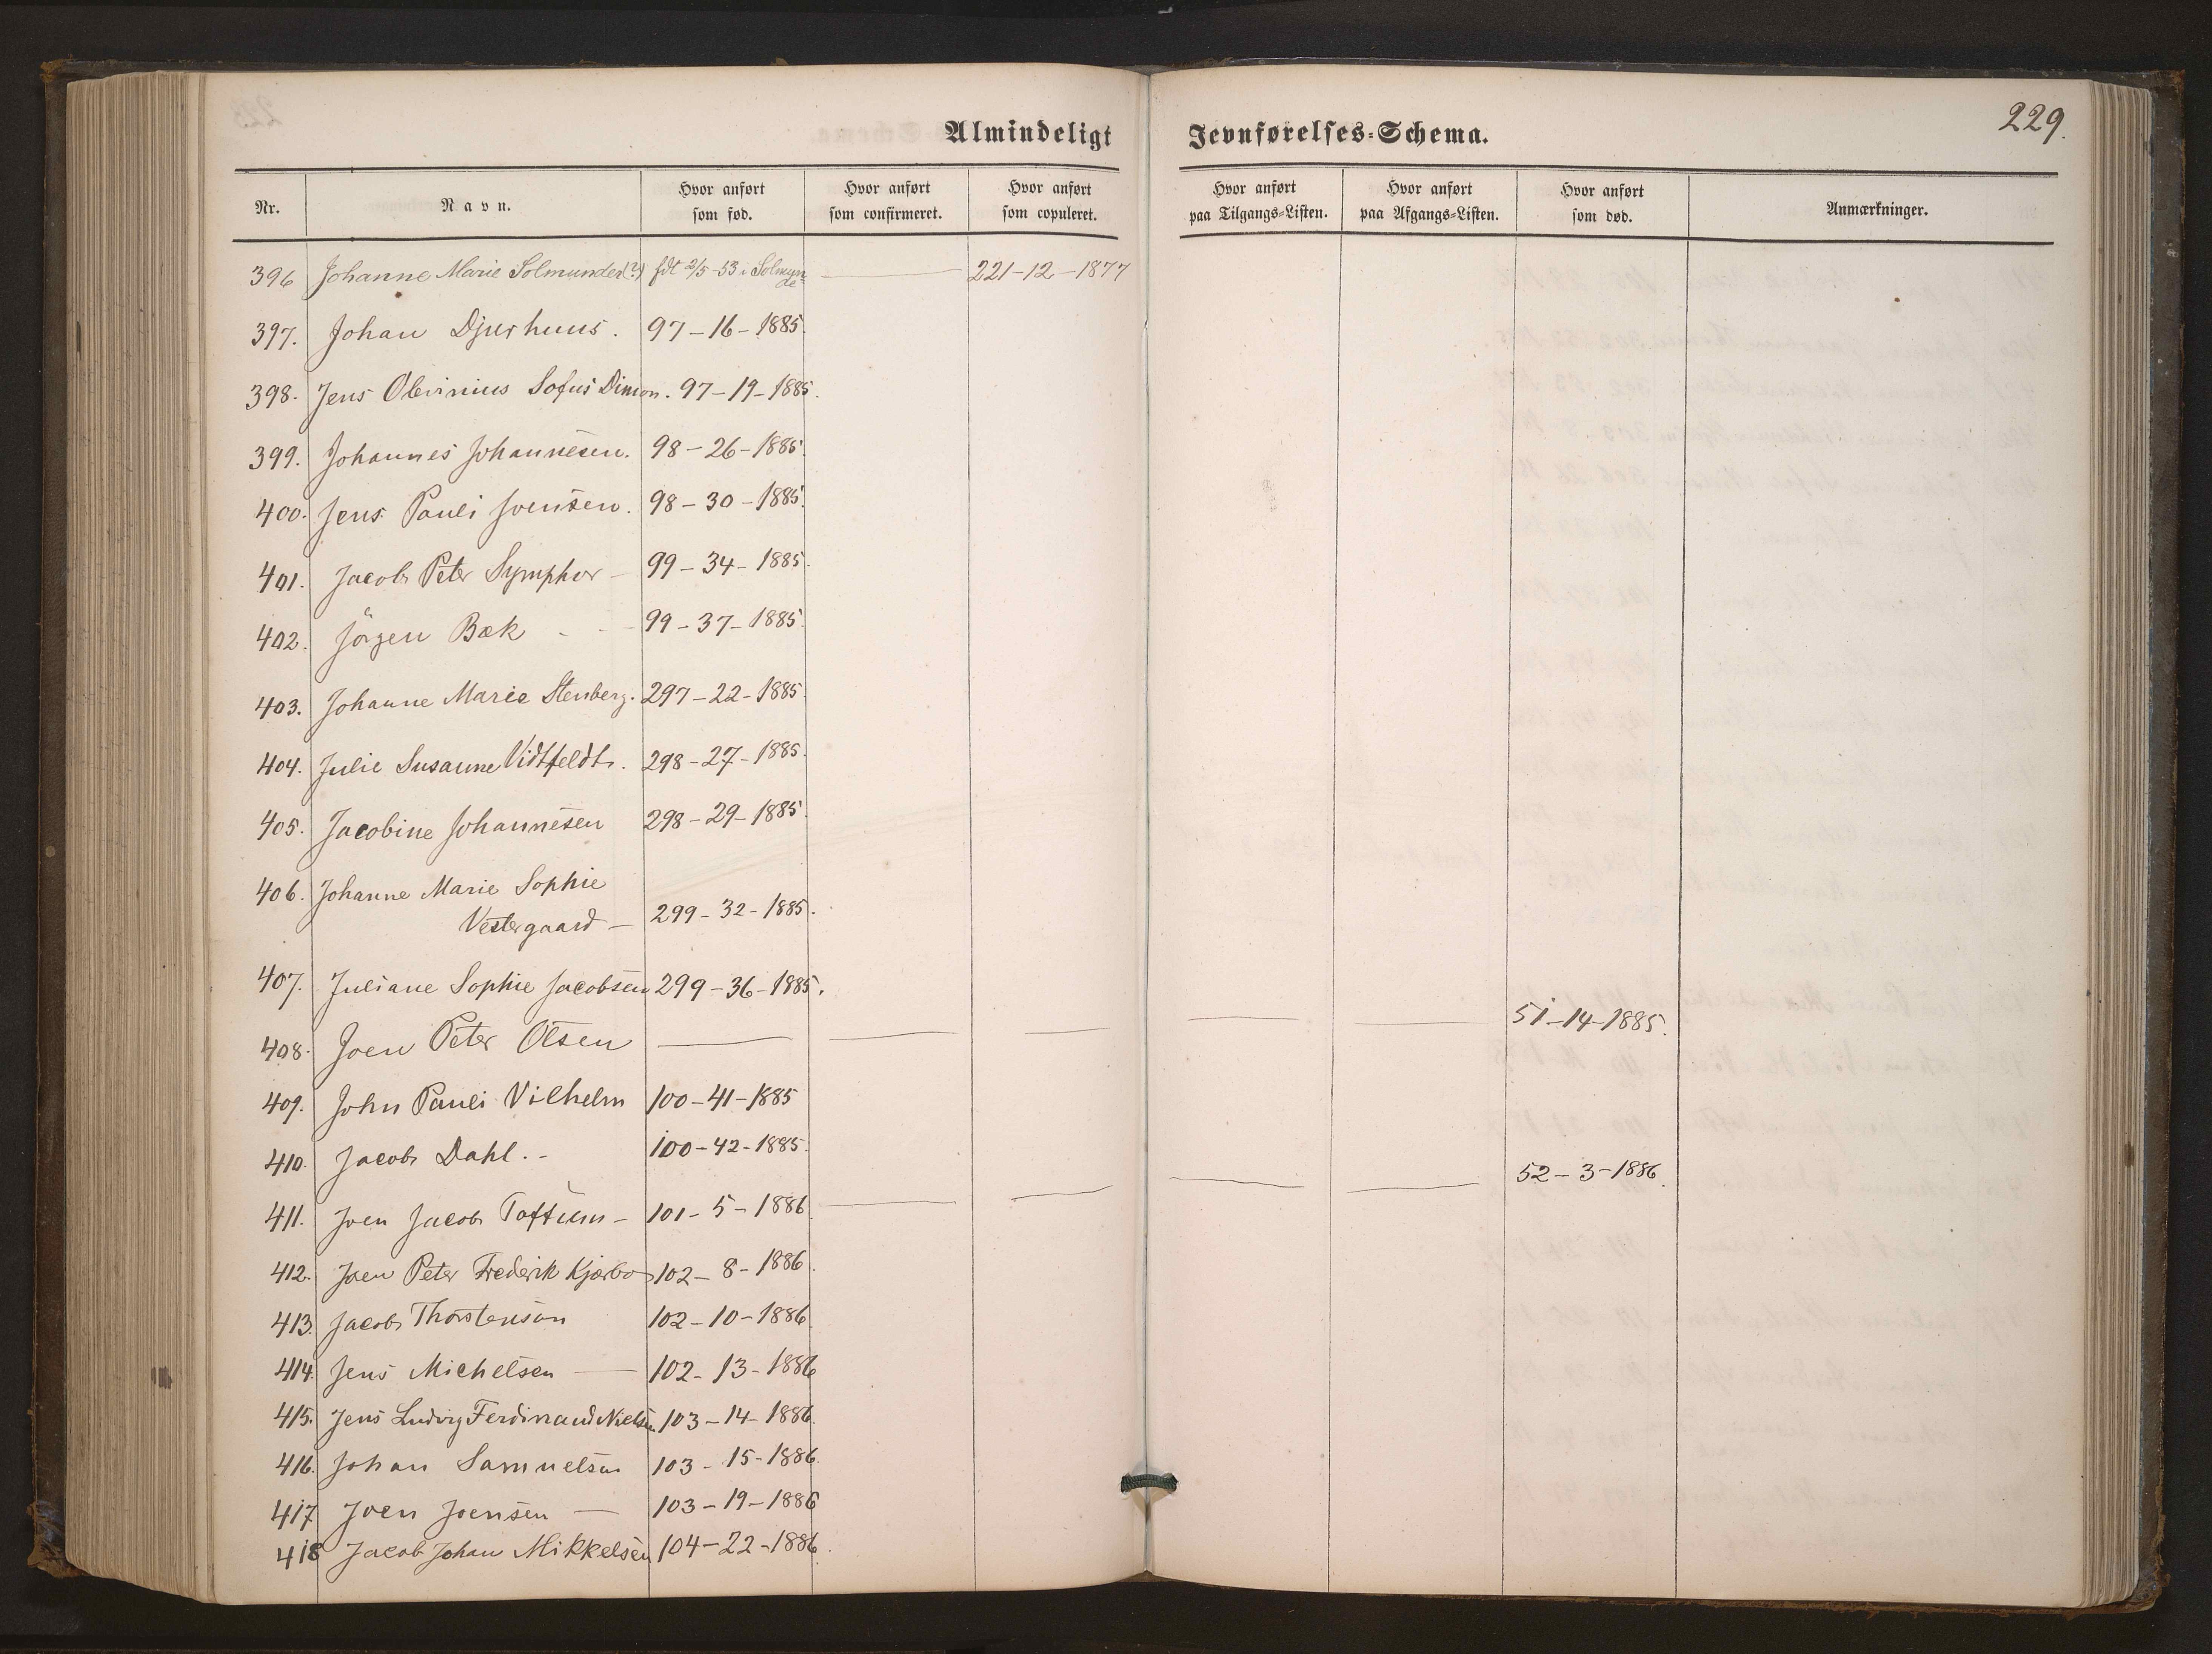 229.
Almindeligt Jevnførelses-Schema.
Nr. Navn. Hvor anført som fød. Hvor anført som confirmeret. Hvor anført som copuleret. Hvor anført paa Tilgangs-Listen. Hvor anført paa Afgangs-Listen. Hvor anført som død. Anmærkninger.
396 Johanne Marie Solmunde(?) fdt 2/5-53 i Solmunde — 221-12-1877
397. Johan Djurhuus. 97-16-1885.
398. Jens Olevinius Sofus Dimon. 97-19-1885.
399. Johannes Johannesen. 98-26-1885.
400. Jens Pauli Joensen. 98-30-1885.
401. Jacob Peter Symphor — 99-34-1885.
402. Jörgen Bæk - - 99-37-1885.
403. Johanne Marie Stenberg. 297-22-1885.
404. Julie Susanne Vidtfeldt. 298-27-1885.
405. Jacobine Johannesen 298-29-1885.
406. Johanne Marie Sophie
Vestergaard — 299-32-1885.
407. Juliane Sophie Jacobsen 299-36-1885.
408. Joen Peter Olsen — — — — — 51-14-1885.
409. John Pauli Vilhelm 100-41-1885
410. Jacob Dahl. - 100-42-1885.
411. Joen Jacob Toftum - 101-5-1886. — — — — 52-3-1886.
412. Joen Peter Frederik Kjærbo 102-8-1886.
413. Jacob Thorstenson 102-10-1886.
414. Jens Michelsen — 102-13-1886
415. Jens Ludvig Ferdinand Nielsen 103-14-1886.
416. Johan Samuelsen 103-15-1886.
417 Joen Joensen — 103-19-1886
418 Jacob Johan Mikkelsen 104-22-1886.